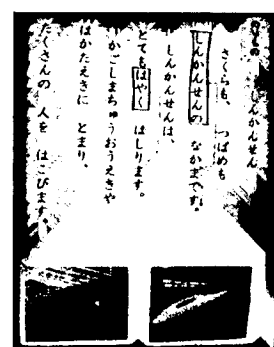 しんかんせん
さくらも、 つばめも
しんかんせんの なかまです。
しんかんせんは、
とても はやく はしります。
かごしまちゅうおうえきや
はかたえきに とまり、
たくさんの 人を はこびます。